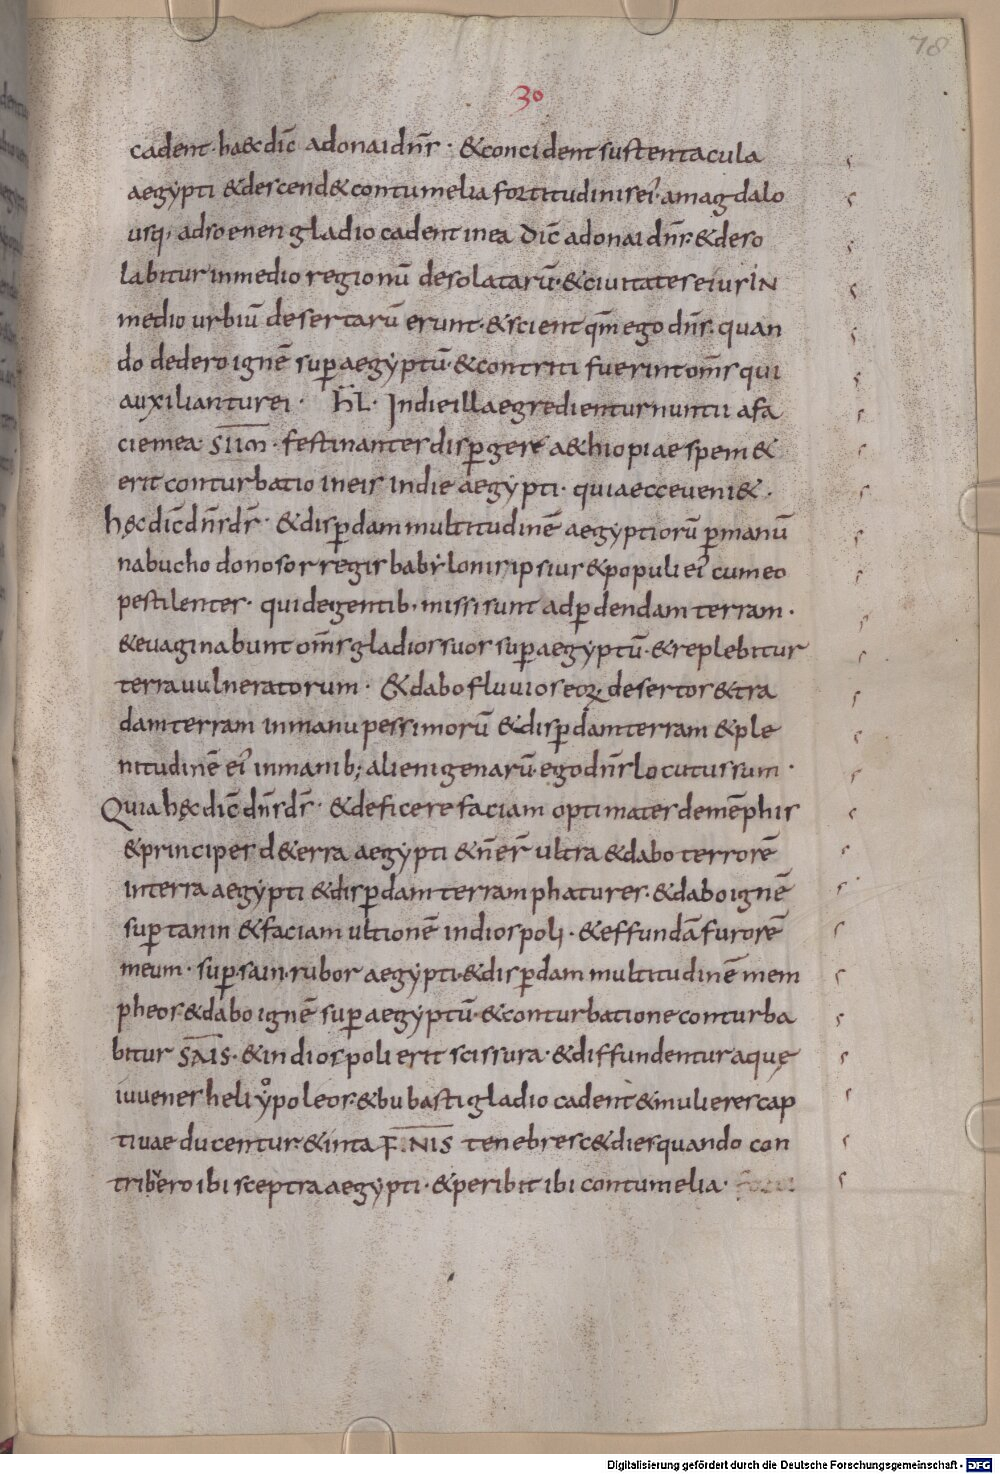 78
30
cadent· haec dic̄ adonai dn̄s · & concident sustentacula
aegypti & descend& contumelia fortitudinis ei' a magdalo
usq; ad soenen gladio cadent in ea dic̄ adonai dn̄s· & deso
labitur in medio regionū desolatarū· & ciuitates eius IN
medio urbiū desertarū erunt· & scient qm̄ ego dn̄s· quan
do dedero ignē sup aegyptū· & contriti fuerint om̄s qui
auxiliantur ei· H̄L· In die illa egredientur nuntii a fa
cie mea· SIIM· festinanter dispgere a&hiopiae spem &
erit conturbatio in eis in die aegypti· quia ecce ueni&·
hęc dic̄ dn̄s ds̄· & dispdam multitudinē aegyptiorū p manū
nabuchodonosor regis babylonis ipsius & populi ei' cum eo
pestilentes· qui de gentib; missi sunt ad pdendam terram·
& euaginabunt om̄s gladios suos sup aegyptū· & replebitur
terra uulneratorum· & dabo fluuios eoꝝ desertos & tra
dam terram in manu pessimorū & dispdam terram & ple
nitudinē ei' in manib; alienigenarū· ego dn̄s locutus sum·
Quia hęc dic̄ dn̄s ds̄· & deficere faciam optimates de mēphis
& principes d& erra aegypti & n̄ er̄ ultra & dabo terrorē
in terra aegypti & dispdam terram phatures· & dabo ignē
sup tanin & faciam ultionē in diospoli· & effundā furorē
meum· sup sain· rubor aegypti· & dispdam multitudinē mem
pheos· & dabo ignē sup aegyptū· & conturbatione conturba
bitur SAIS· & in diospoli erit scissura· & diffundentur aquę
iuuenes heliypoleos· & bubasti gladio cadent & mulieres cap
tiuae ducentur· & in ta F.NIS tenebresc& dies quando con
tribero ibi sceptra aegypti· & peribit ibi contumelia·
Digitalisierung gefördert durch die Deutsche Forschungsgemeinschaft - DFG